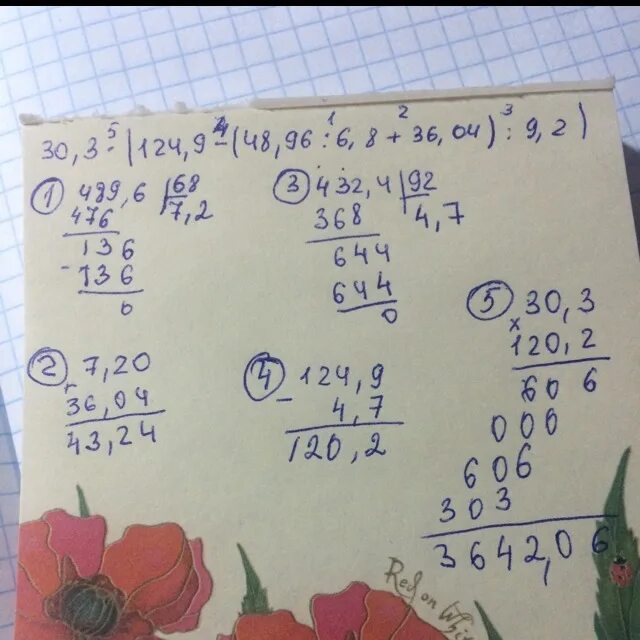 30,3 · (124,9 - (48,96 : 6,8 + 36,04) : 9,2)
5 4 1 2 3
① 489,6 | 68
476 7,2
136
- 136
0
③ 432,4 | 92
368 4,7
644
644
0
② 7,20
+ 36,04
43,24
④ 124,9
- 4,7
120,2
⑤ 30,3
× 120,2
606
000
606
303
3642,06
Red on Whi